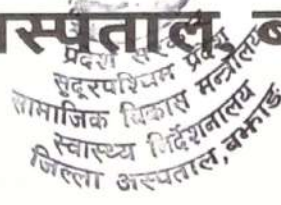 अस्पताल, ब
प्रदेश
सुदूरपश्चिम प्रदेश
सामाजिक विकास मन्त्रालय
स्वास्थ्य निर्देशनालय
जिल्ला अस्पताल, बझाङ